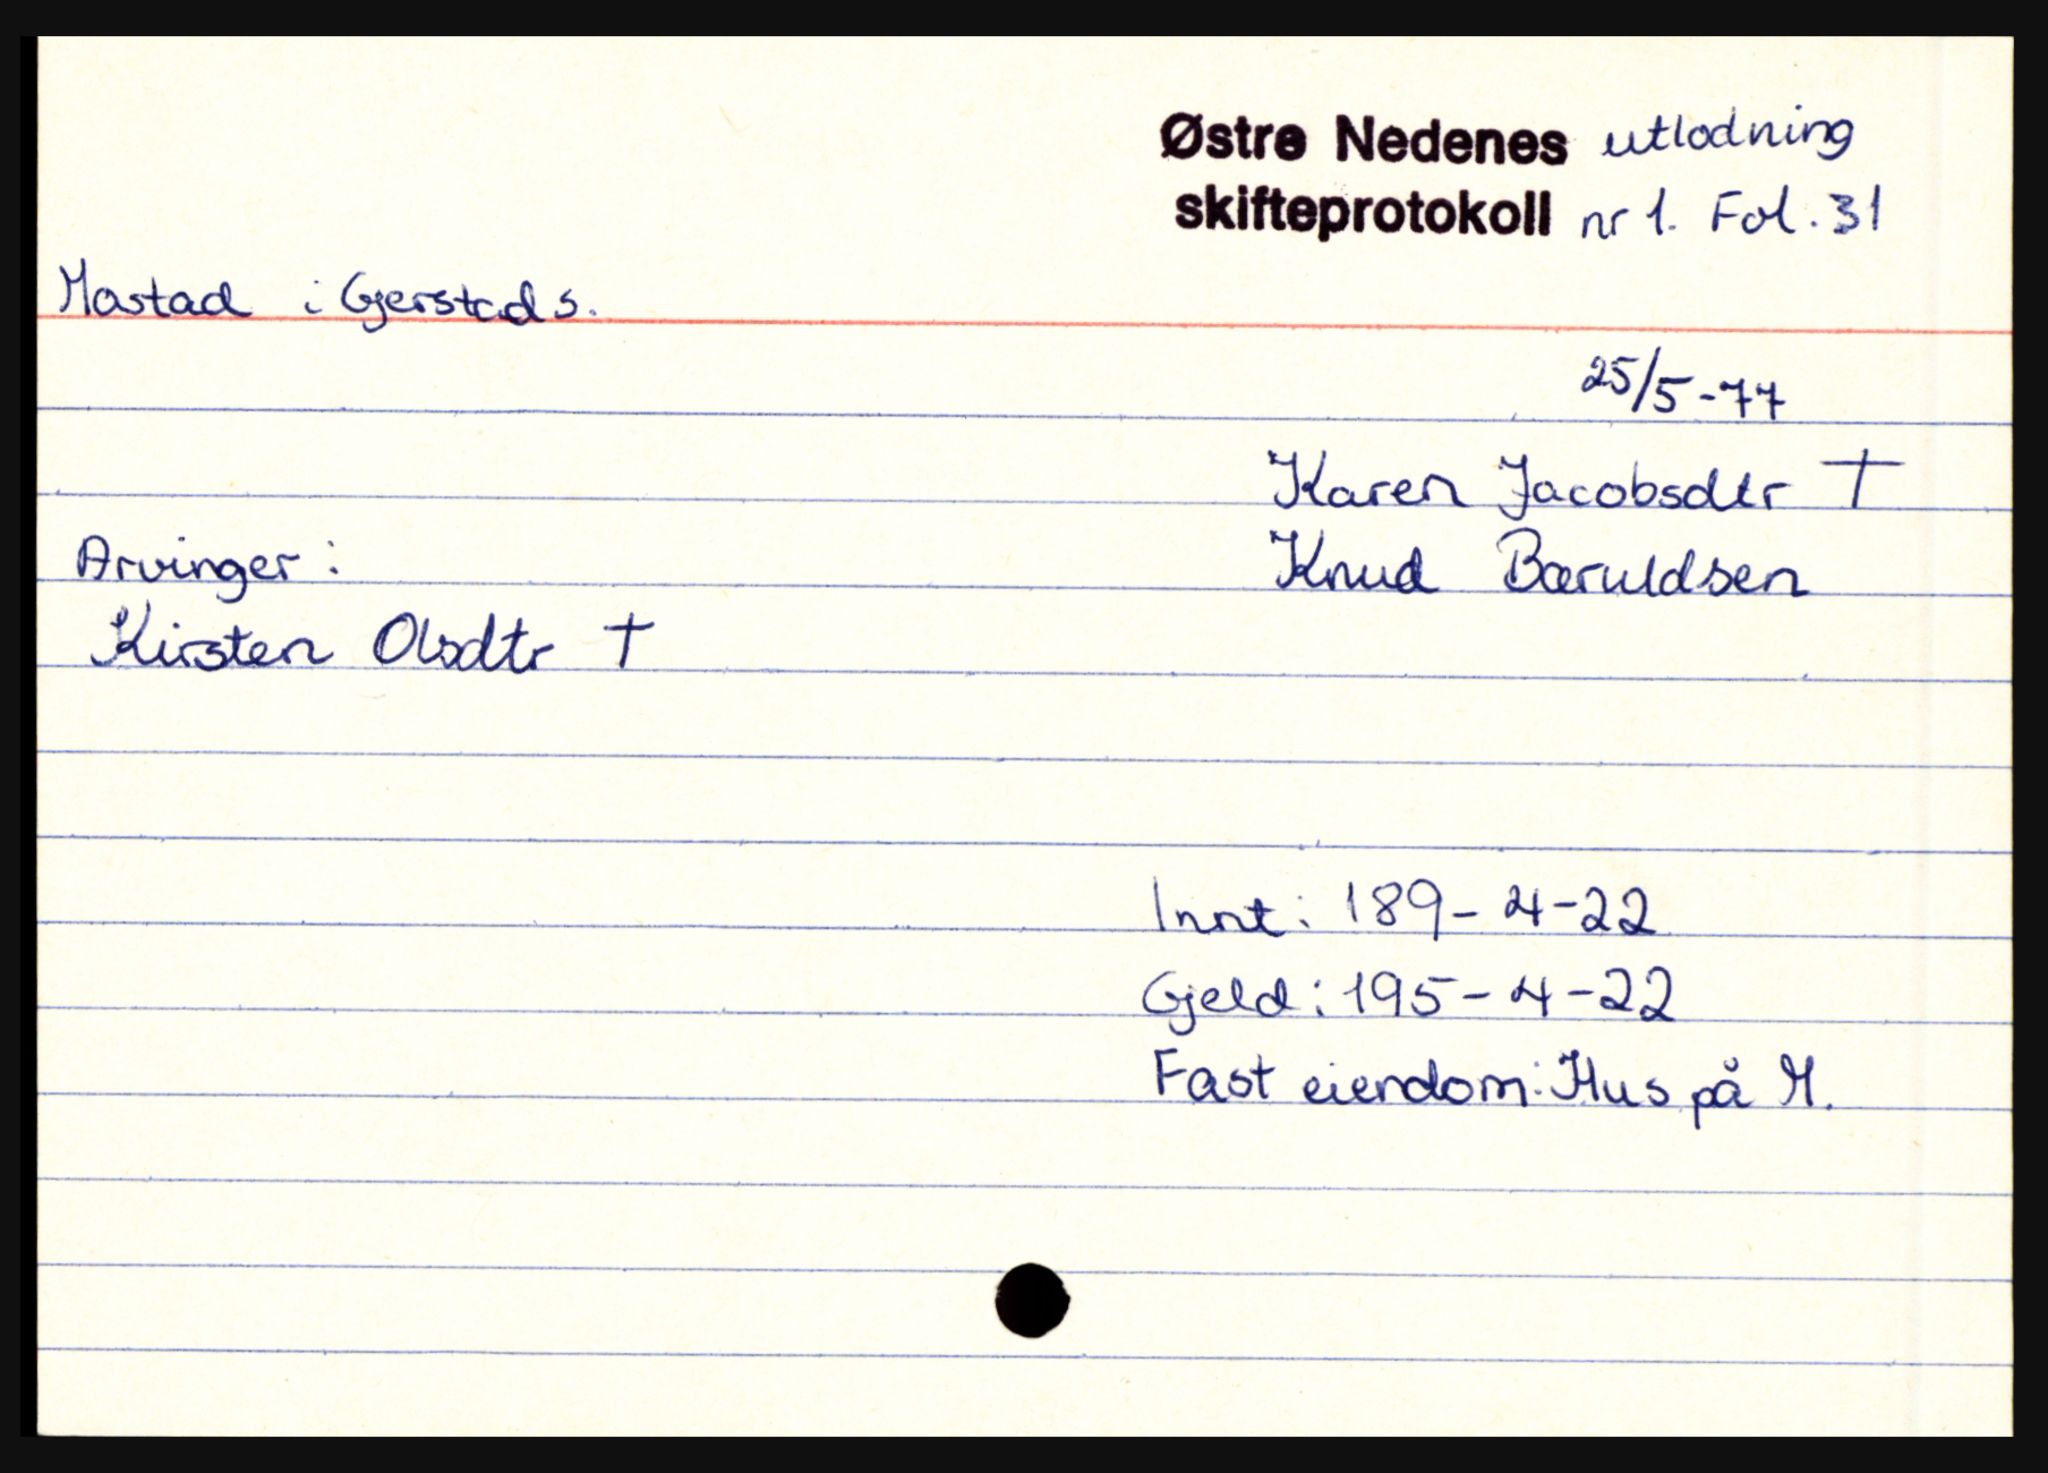 Østre Nedenes utlodning
skifteprotokoll nr 1. Fol. 31
Mostad i Gjerstad s.
25/5-77
Karen Jacobsdtr †
Arvinger:
Knud Bæruldsen
Kirsten Olsdtr †
Innt: 189-4-22
Gjeld: 195-4-22
Fast eiendom: Hus på M.